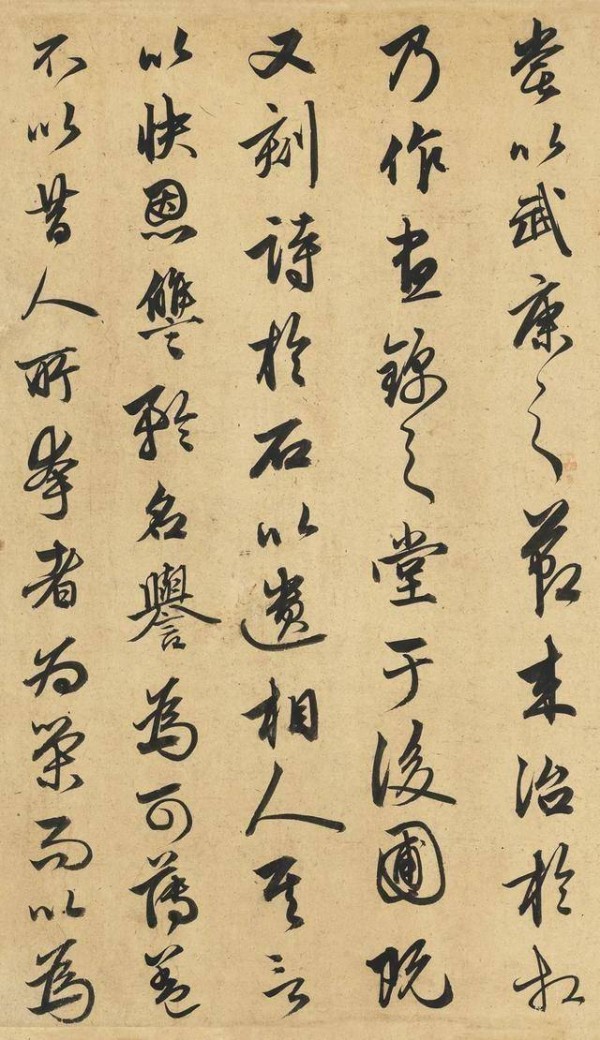 嘗以武康之節来治於相
乃作晝錦之堂于後圃既
又刻詩於石以遺相人其言
以快恩讐矜名譽為可薄盖
不以昔人所夸者为榮而以為